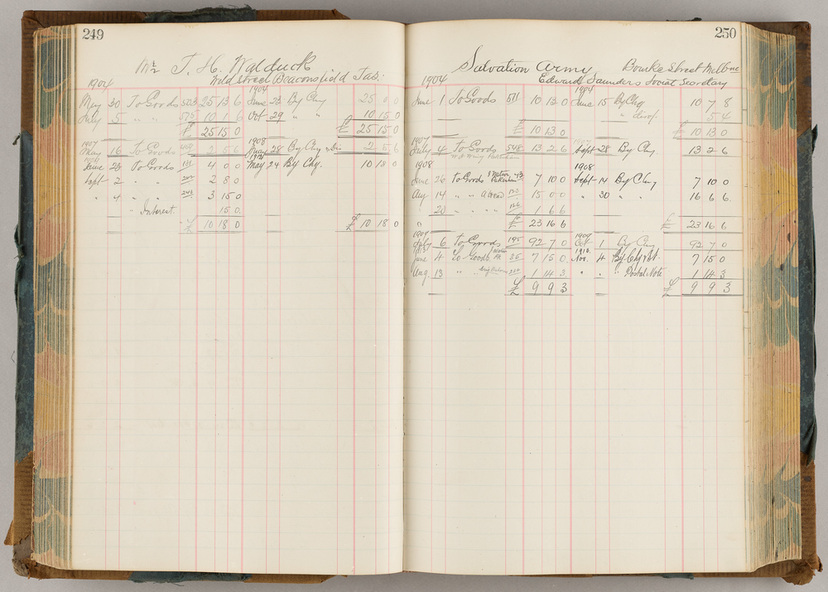 249
Mr T. H. Walduck
Weld Street Beaconsfield Tas:
1904
1904
May 30 To Goods 25 13 6 June 23 By Chq 25 0 0
July 5 " " 575 10 1 6 Oct 29 " " 10 15 0
£ 25 15 0 £ 25 15 0
1907 1908
16 To Goods 2 5 6 28 By Chq 2 5 6
June 23 To Goods 4 0 0 May 24 By Chq. 10 18 0
Sept 2 " " 2 8 0
" 4 " " 3 15 0
" Interest 15 0
£ 10 18 0 £ 10 18 0
250
Salvation Army Bourke Street Melbne
Edward Saunders Social Secretary
1904 1904
June 1 To Goods 511 10 13 0 June 15 By Chq 10 7 8
" disct 5 4
£ 10 13 0 £ 10 13 0
1907 1907
July 4 To Goods 548 13 2 6 Sept 28 By Chq 13 2 6
1908 1908
June 30 To Goods 7 10 0 Sept 14 By Chq 7 10 0
Aug 14 " " 15 0 0 " 30 " " 16 6 6
" 1 6 6
£ 23 16 6 £ 23 16 6
1909 1909
July 6 To Goods 195 92 7 0 Oct 1 By Chq 92 7 0
1912
June 4 To Goods 35 7 15 0 Nov. 4 By Chq 7 15 0
Aug 13 " " 1 14 3 " " " Postal Note 1 14 3
£ 9 9 3 £ 9 9 3